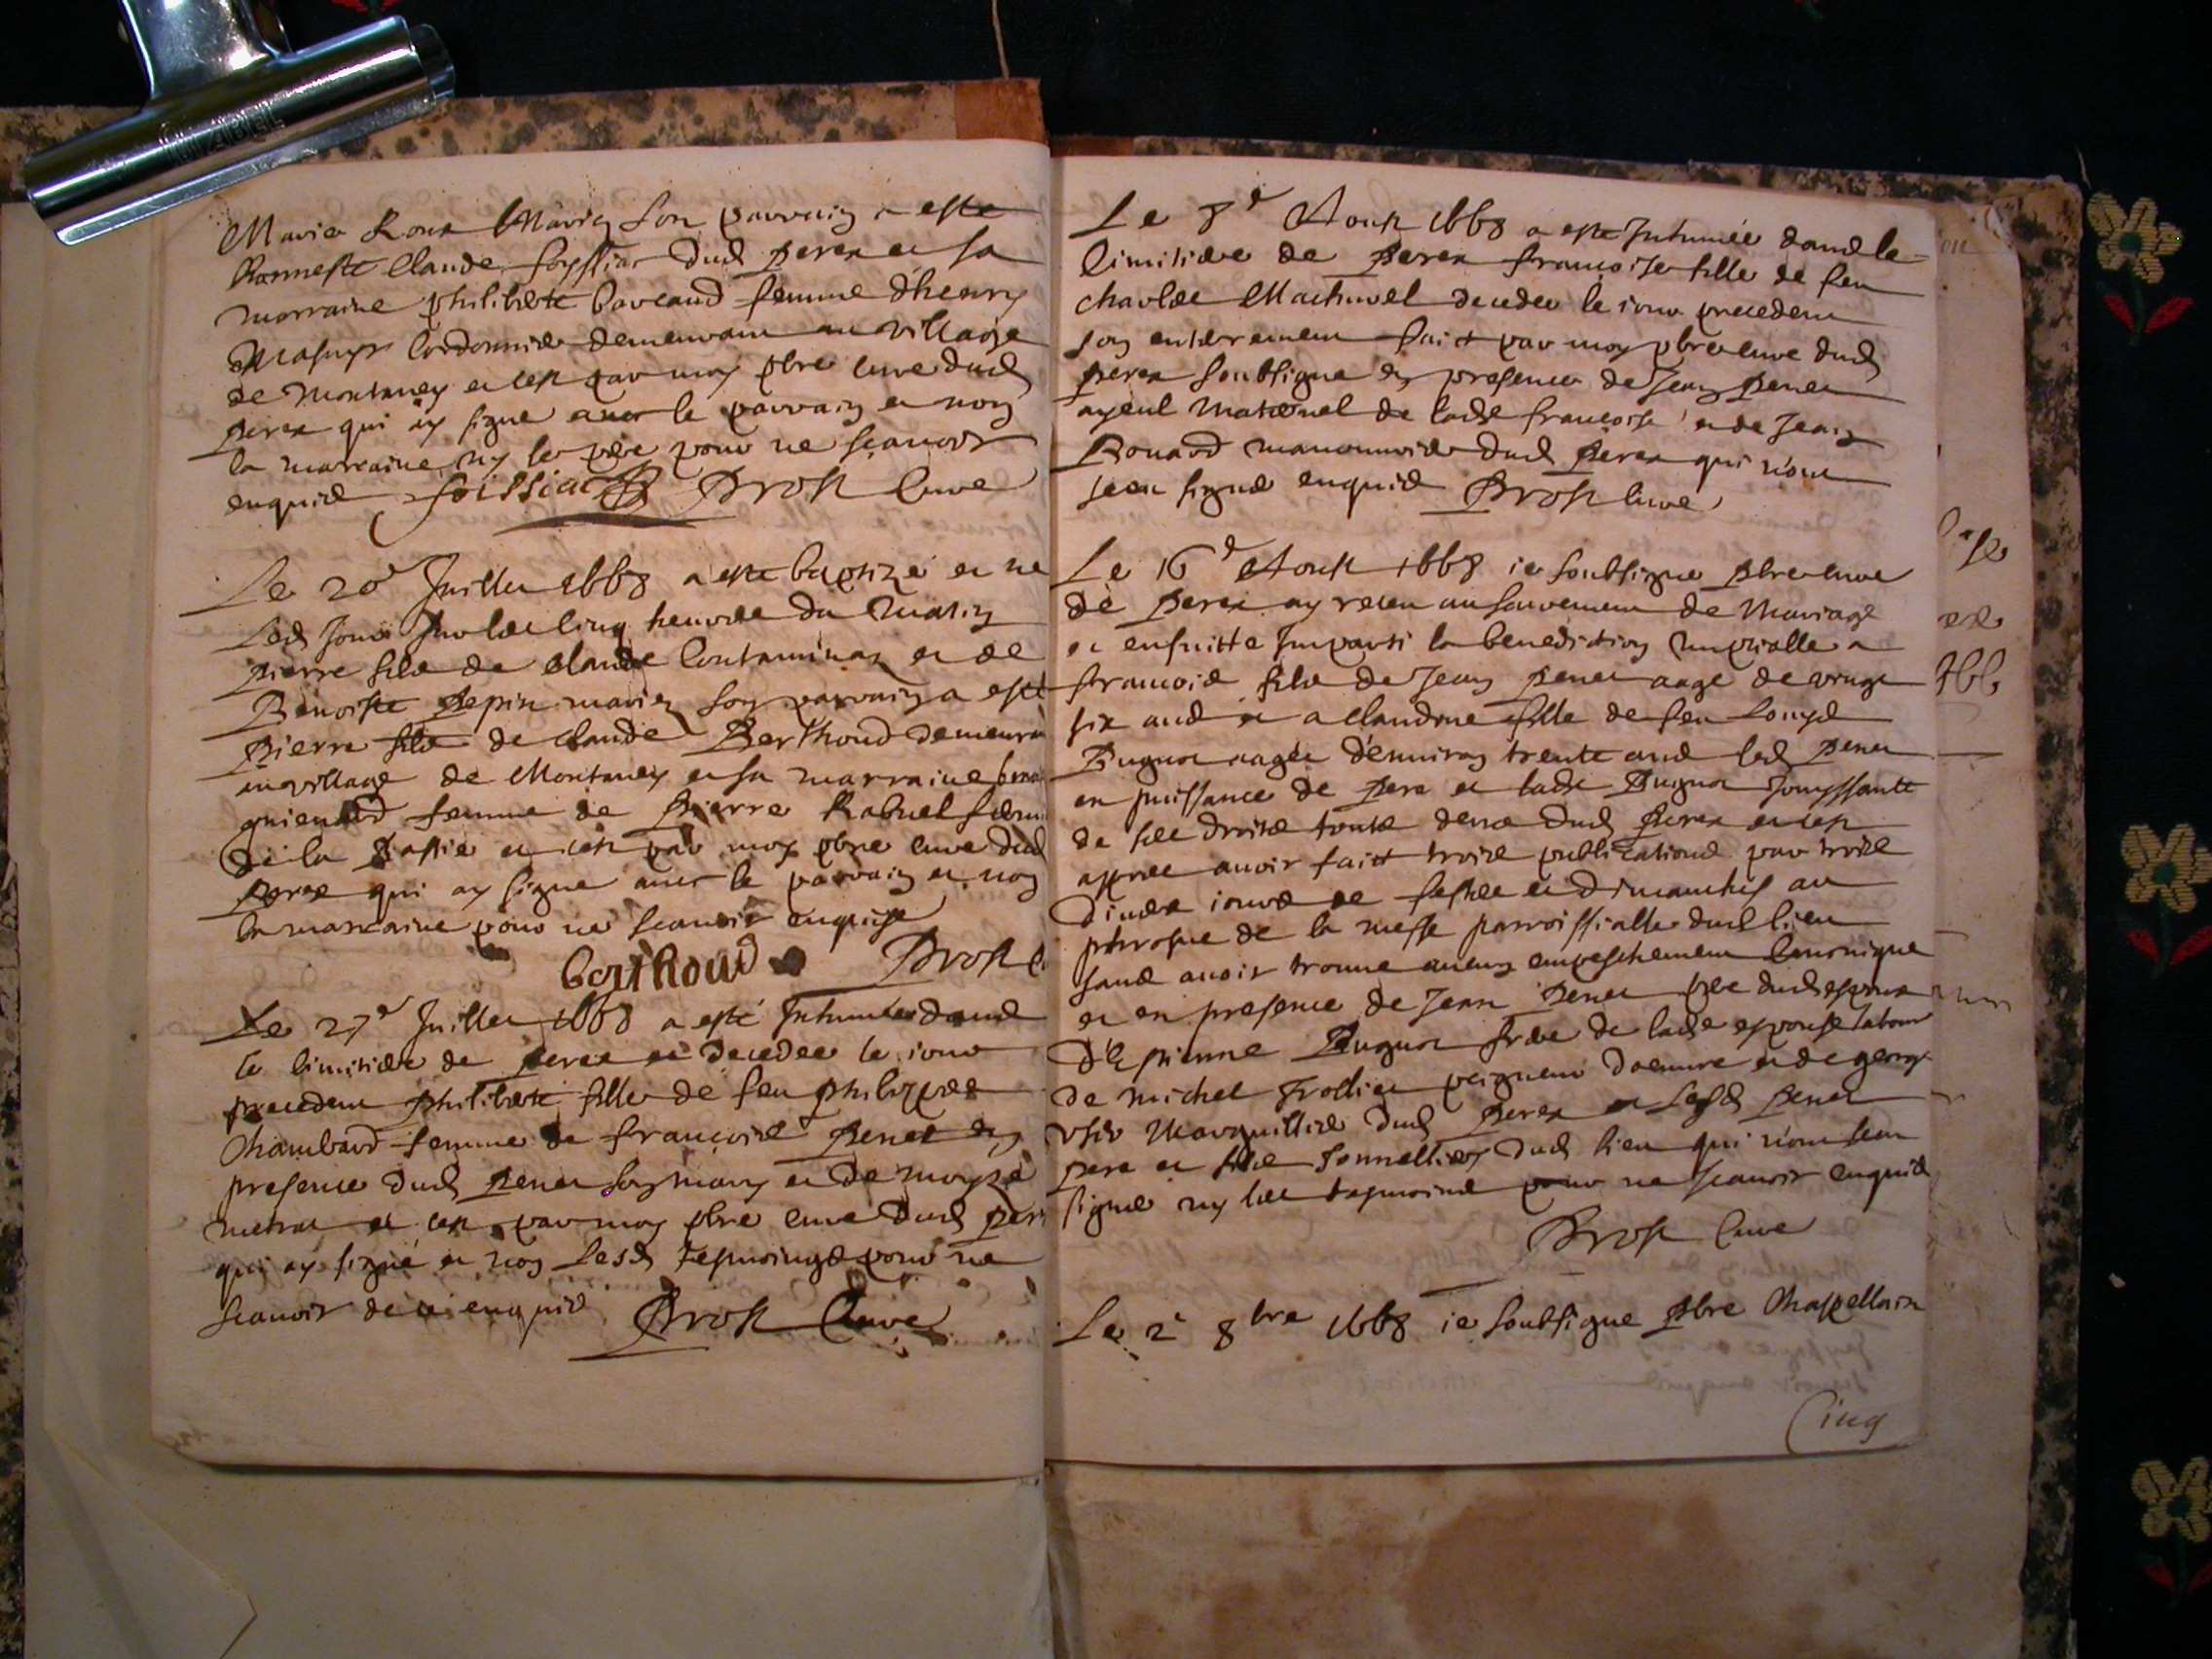 Marie Roux Mariez son parrain a esté
honneste Claude foyssiat dud perex et sa
marraine philiberte baveaud femme d'henry
Masuyr Cordonnier demeurant au village
de Montaney et cest par moy pbre curé dud
perex qui ay signé avec le parrain et non
la marraine ny le pere pour ne sçauoir
enquis foissiat Brost Curé
Le 20e Juillet 1668 a esté baptizé et né
led Jour sur les cinq heures du matin
Pierre fils de Claude Contaminaz et de
Benoiste Pepin mariez son parrain a esté
Pierre fils de Claude Berthoud demeura
au village de Montaney et sa marraine
femme de Pierre Rabuel
de la et cest par moy pbre curé dud
perex qui ay signé auec le parrain et non
la marraine pour ne scauoir enquise
berthoud Brost C
Le 27e Juillet 1668 a esté Inhumée dans
le Cimitiere de perex et decedee le iour
precedent philiberte fille de feu philippes
Chambard femme de françois Penet en
presence dud Penet son mary et de moyze
metrat et cest par moy pbre curé dud per
qui ay signé et non lesd tesmoings pour ne
scauoir de ce enquis Brost Curé
Le 8e Aoust 1668 a esté Inhumée dans le
Cimitiere de Perex françoise fille de feu
Charles Mathuel decedee le iour precedent
son enterrement faict par moy pbre curé dud
perex soubsigné en presence de Jean Penet
ayeul maternel de lade françoise et de Jean
Bonard manouurier dud Perex qui n'ont
sceu signer enquis Brost Curé
Le 16e Aoust 1668 ie soubsigné pbre curé
de Perex ay receu au sacrement de Mariage
et ensuitte Imparti la benediction nuptialle a
francois fils de Jean Penet aagé de vingt
six ans et a Claudine fille de feu Louys
Pugnot aagée d'enuiron trente ans led Penet
en puissance de Pere et lade Pugnot Jouyssante
de ses droits touts deux dud Perex et cest
apres auoir faict trois publications par trois
diuers iours de festes et dimanches au
phrosne de la messe parroissialle dud lieu
sans auoir trouué aucun empeschement Canonique
et en presence de Jean Penet pere dud espoux
d'Estienne Pugnot frere de lade espouse
de michel Trollier peigneur d'oeuure et de georg
Marguillier dud Perex et lesd Penet
pere et fils Tonnelliers dud lieu qui n'ont sceu
signer ny les tesmoins pour ne scauoir enquis
Brost Curé
Le 2e 8bre 1668 ie soubsigné pbre Chappellain
Cinq